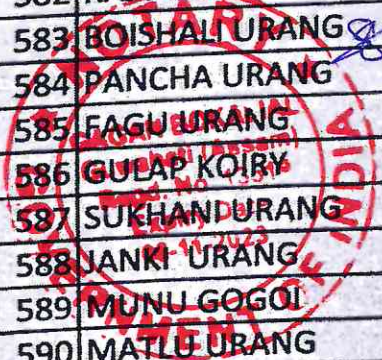 583 BOISHALI URANG
584 PANCHA URANG
585 FAGU URANG
586 GULAP KOIRY
587 SUKHANI URANG
588 JANKI URANG
589 MUNU GOGOI
590 MATLU URANG
NOTARY
(Assam)
Regd. No
Expiry Dt
-11-2023
OF INDIA